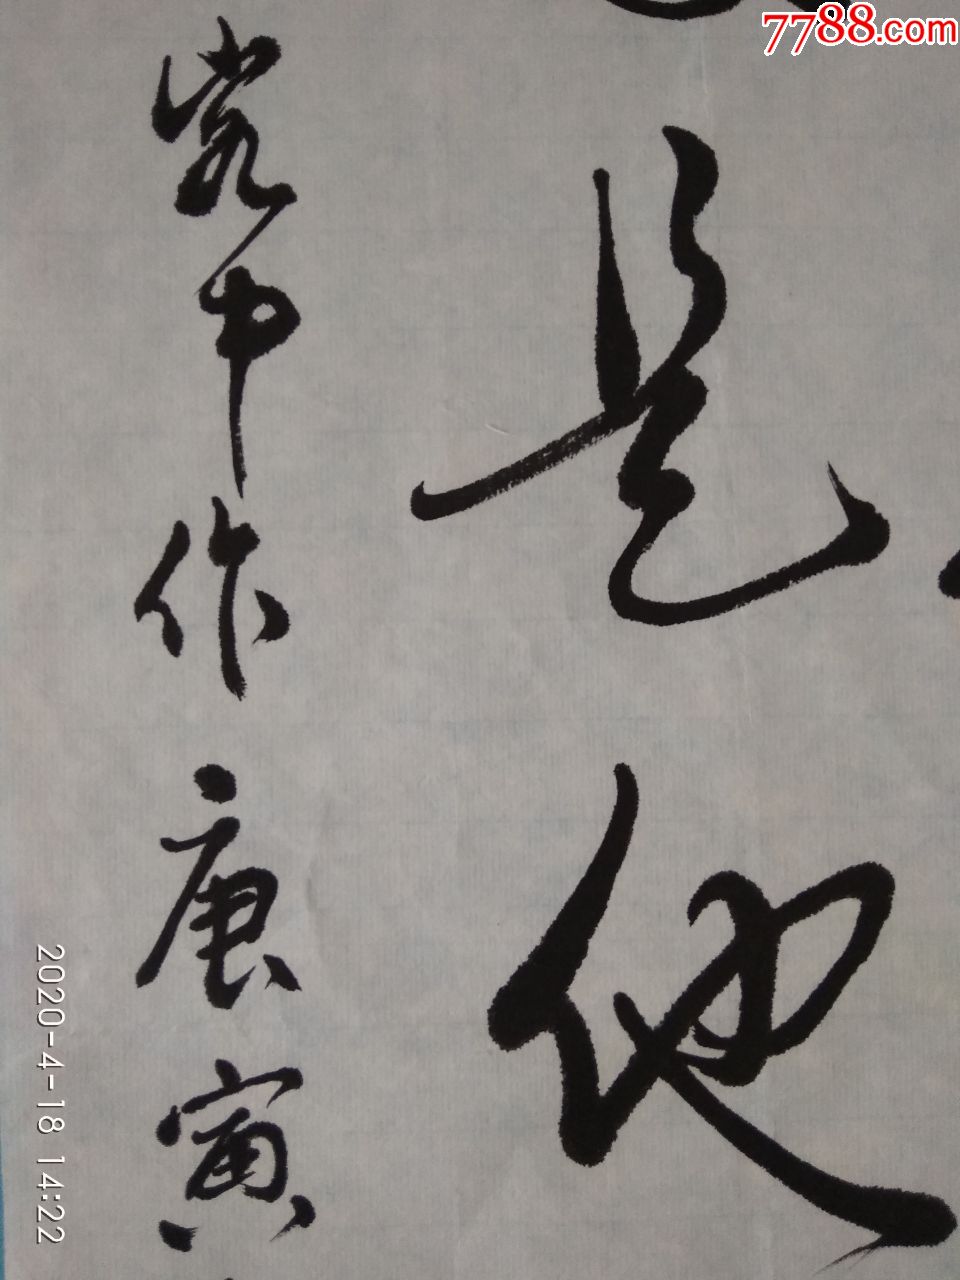 7788.com
是他
客中作庚寅
2020-4-18 14:22